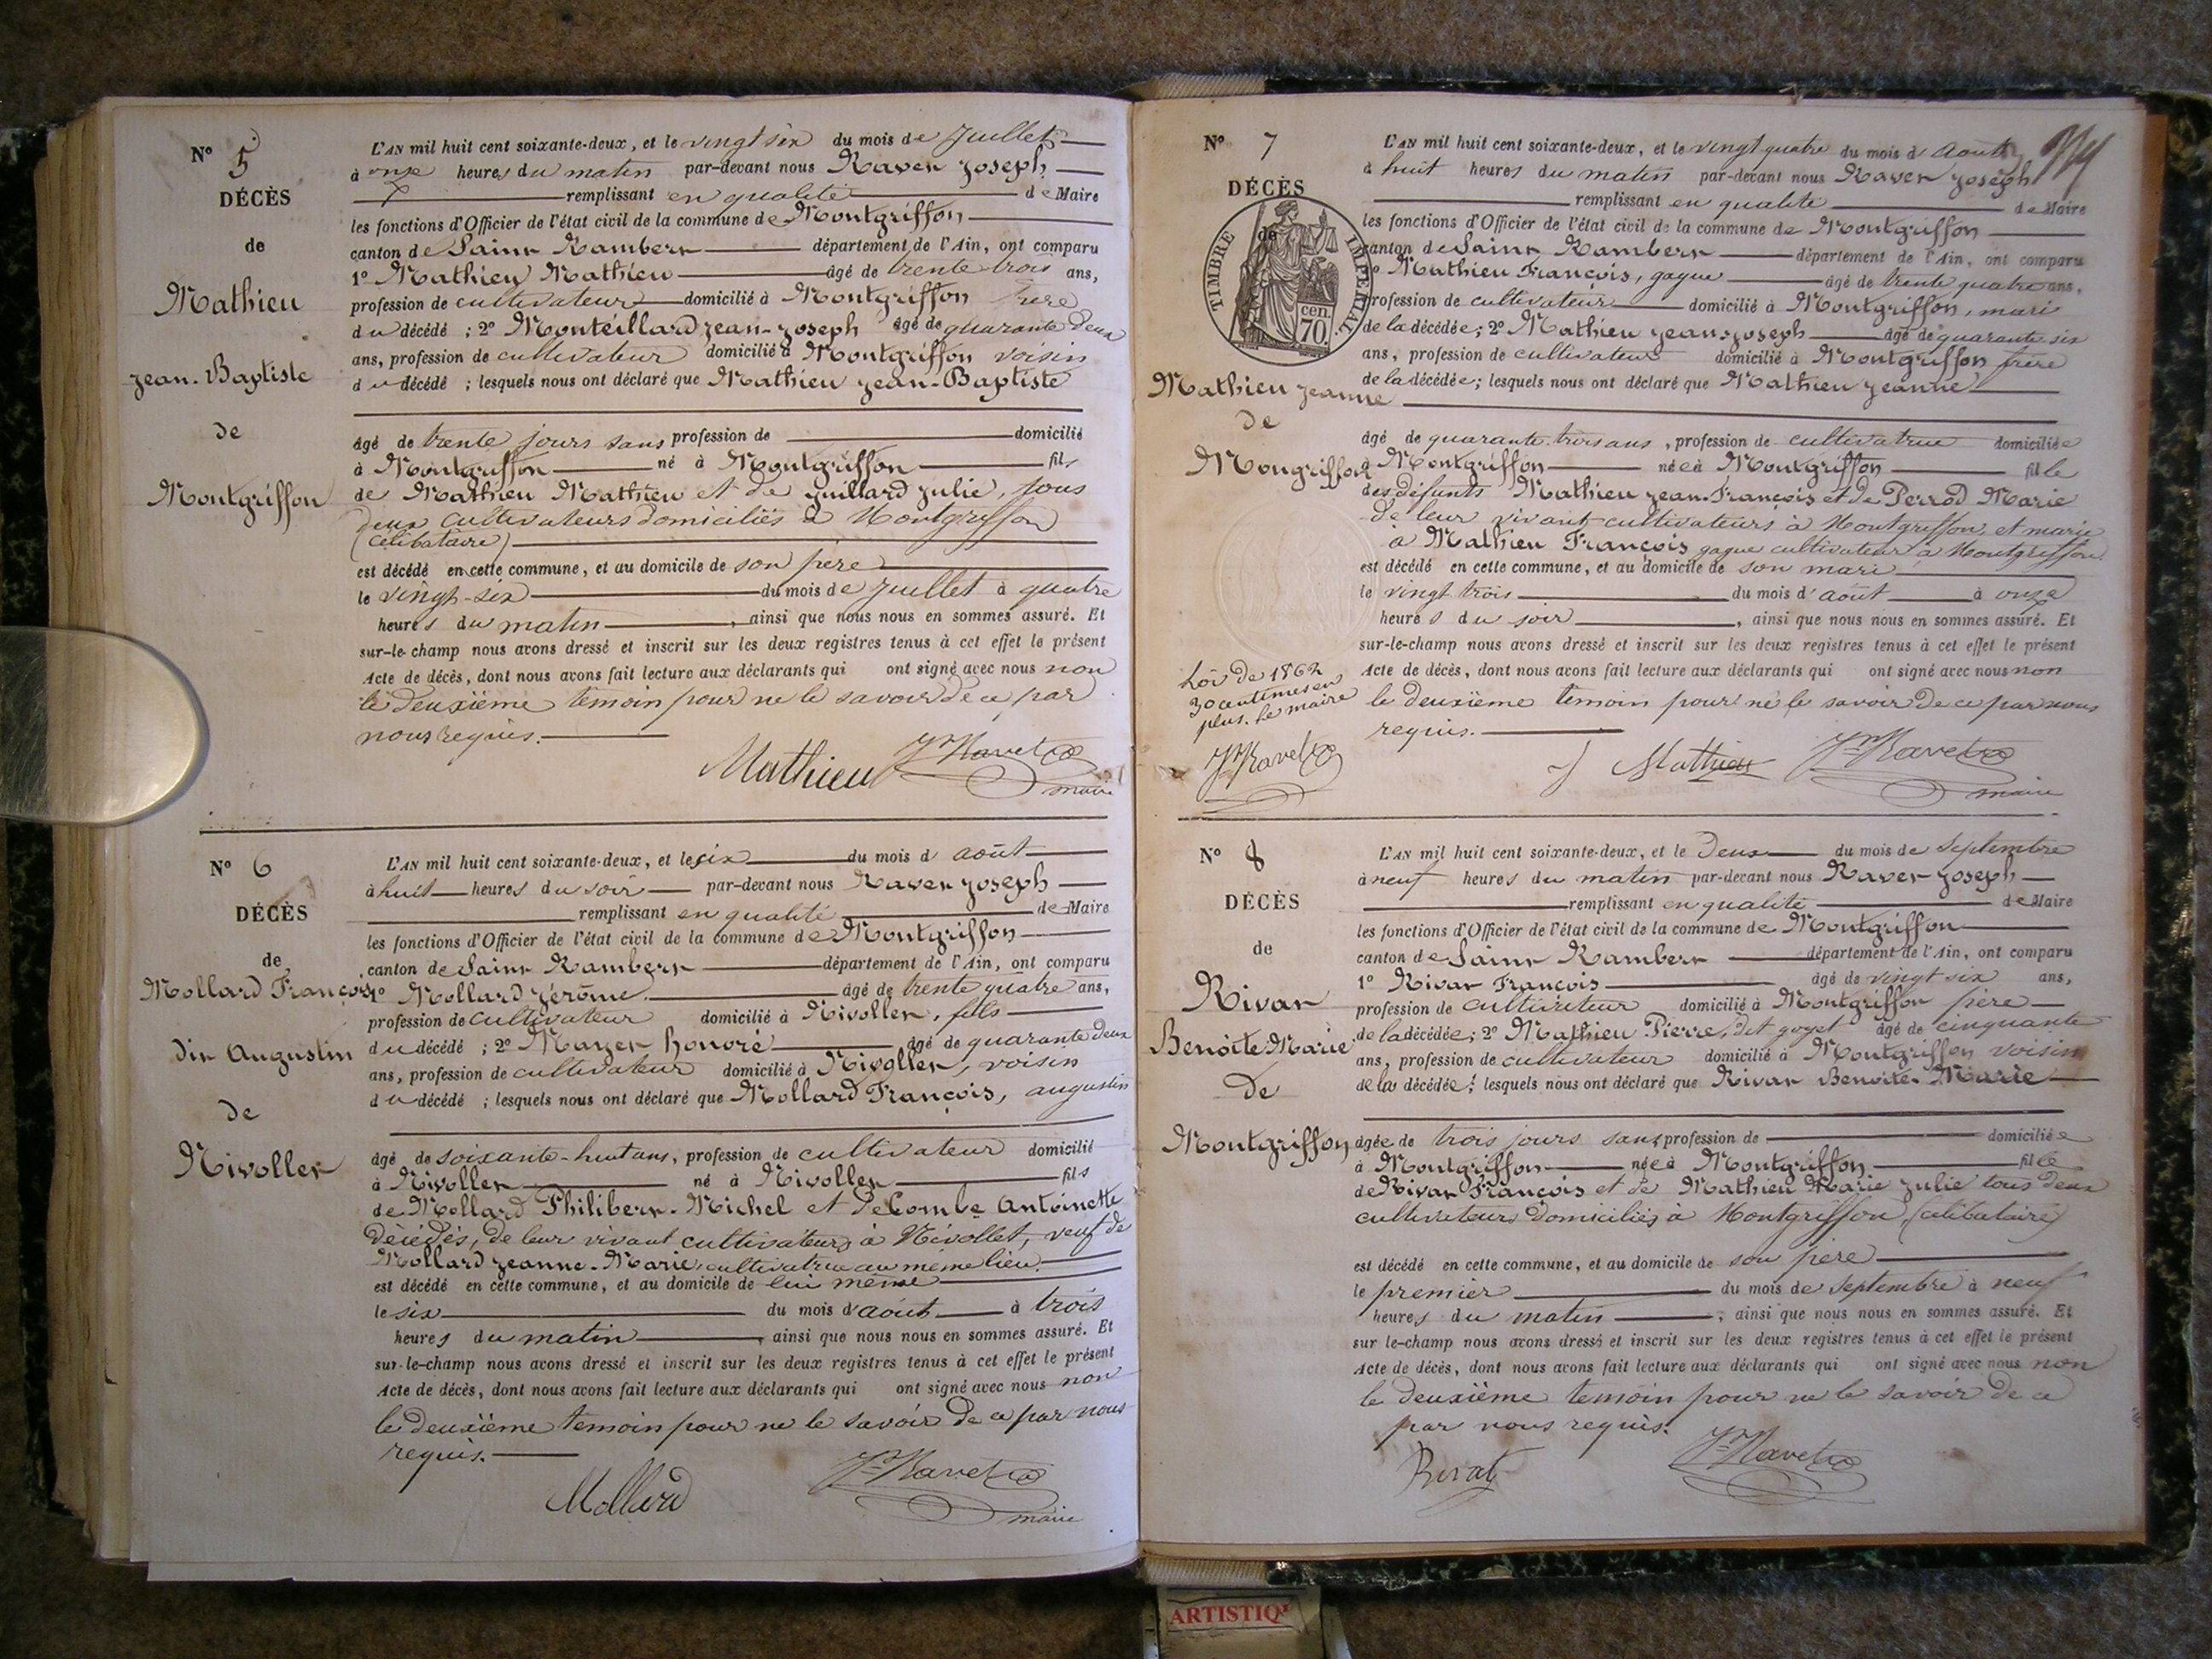 N° 5
DÉCÈS
de
Mathieu
Jean-Baptiste
de
Montgriffon
L'AN mil huit cent soixante-deux, et le vingt six du mois de Juillet
à onze heures du matin par-devant nous Ravet Joseph
remplissant en qualité de Maire
les fonctions d'Officier de l'état civil de la commune de Montgriffon
canton de Saint Rambert département de l'Ain, ont comparu
1° Mathieu Mathieu âgé de trente-trois ans,
profession de cultivateur domicilié à Montgriffon Père
du décédé ; 2° Monteillard Jean-Joseph âgé de quarante deux
ans, profession de cultivateur domicilié à Montgriffon voisin
du décédé ; lesquels nous ont déclaré que Mathieu Jean-Baptiste
âgé de trente jours sans profession de domicilié
à Montgriffon né à Montgriffon fils
de Mathieu Mathieu et de Juillard Julie, tous
deux cultivateurs domiciliés à Montgriffon
(célibataire)
est décédé en cette commune, et au domicile de son père
le vingt-six du mois de Juillet à quatre
heures du matin, ainsi que nous nous en sommes assuré. Et
sur-le-champ nous avons dressé et inscrit sur les deux registres tenus à cet effet le présent
Acte de décès, dont nous avons fait lecture aux déclarants qui ont signé avec nous non
le deuxième temoin pour ne le savoir de ce par
nous requis.
Mathieu Jh Ravet
maire
N° 6
DÉCÈS
de
Mollard François
dit Augustin
de
Nivollet
L'AN mil huit cent soixante-deux, et le six du mois d'août
à huit heures du soir par-devant nous Ravet Joseph
remplissant en qualité de Maire
les fonctions d'Officier de l'état civil de la commune de Montgriffon
canton de Saint Rambert département de l'Ain, ont comparu
1° Mollard Jérôme âgé de trente quatre ans,
profession de cultivateur domicilié à Nivollet, fils
du décédé ; 2° Mayet honoré âgé de quarante deux
ans, profession de cultivateur domicilié à Nivollet, voisin
du décédé ; lesquels nous ont déclaré que Mollard François, augustin
âgé de soixante-huit ans, profession de cultivateur domicilié
à Nivollet né à Nivollet fils
de Mollard Philibert-Michel et de Combe Antoinette
décédés, de leur vivant cultivateurs à Nivollet, veuf de
Mollard Jeanne-Marie cultivatrice au même lieu.
est décédé en cette commune, et au domicile de lui même
le six du mois d'août à trois
heures du matin, ainsi que nous nous en sommes assuré. Et
sur-le-champ nous avons dressé et inscrit sur les deux registres tenus à cet effet le présent
Acte de décès, dont nous avons fait lecture aux déclarants qui ont signé avec nous non
le deuxième temoin pour ne le savoir de ce par nous
requis.
Mollard Jh Ravet
maire
N° 7
DÉCÈS
de
TIMBRE IMPÉRIAL
70 cen.
Mathieu Jeanne
de
Mongriffon
Loi de 1862
30 centimes en
plus. Le maire
Jh Ravet
L'AN mil huit cent soixante-deux, et le vingt quatre du mois d'Août
à huit heures du matin par-devant nous Ravet Joseph
remplissant en qualité de Maire
les fonctions d'Officier de l'état civil de la commune de Montgriffon
canton de Saint Rambert département de l'Ain, ont comparu
1° Mathieu François, gague âgé de trente quatre ans,
profession de cultivateur domicilié à Montgriffon, mari
de la décédée ; 2° Mathieu Jean-Joseph âgé de quarante six
ans, profession de cultivateur domicilié à Montgriffon frère
de la décédée ; lesquels nous ont déclaré que Mathieu Jeanne
âgé de quarante-trois ans, profession de cultivatrice domiciliée
à Montgriffon née à Montgriffon fille
des défunts Mathieu Jean-François et de Perrod Marie
de leur vivant cultivateurs à Montgriffon, et marie
à Mathieu François gague cultivateur à Montgriffon
est décédé en cette commune, et au domicile de son mari
le vingt trois du mois d'août à onze
heures du soir, ainsi que nous nous en sommes assuré. Et
sur-le-champ nous avons dressé et inscrit sur les deux registres tenus à cet effet le présent
Acte de décès, dont nous avons fait lecture aux déclarants qui ont signé avec nous non
le deuxième temoin pour ne le savoir de ce par nous
requis.
Mathieu Jh Ravet
maire
N° 8
DÉCÈS
de
Rivat
Benoite Marie
de
Montgriffon
L'AN mil huit cent soixante-deux, et le Deux du mois de Septembre
à neuf heures du matin par-devant nous Ravet Joseph
remplissant en qualité de Maire
les fonctions d'Officier de l'état civil de la commune de Montgriffon
canton de Saint Rambert département de l'Ain, ont comparu
1° Rivat François âgé de vingt six ans,
profession de cultivateur domicilié à Montgriffon père
de la décédée ; 2° Mathieu Pierre, dit goyet âgé de cinquante
ans, profession de cultivateur domicilié à Montgriffon voisin
de la décédée ; lesquels nous ont déclaré que Rivat Benoite-Marie
âgée de trois jours sans profession de domiciliée
à Montgriffon née à Montgriffon fille
de Rivat François et de Mathieu Marie Julie tous deux
cultivateurs domiciliés à Montgriffon, (célibataire)
est décédé en cette commune, et au domicile de son père
le premier du mois de Septembre à neuf
heures du matin ; ainsi que nous nous en sommes assuré. Et
sur le-champ nous avons dressé et inscrit sur les deux registres tenus à cet effet le présent
Acte de décès, dont nous avons fait lecture aux déclarants qui ont signé avec nous non
le deuxième temoin pour ne le savoir de ce
par nous requis.
Rivat Jh Ravet
ARTISTIQ